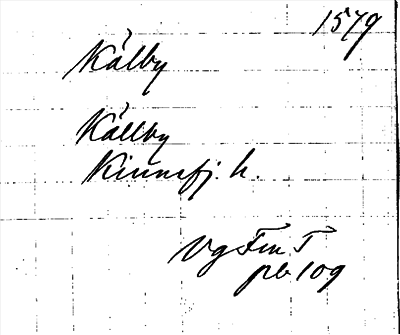 1579
Kålby
Källby
Kinnefj. h.
Vg Fm T
pb 109